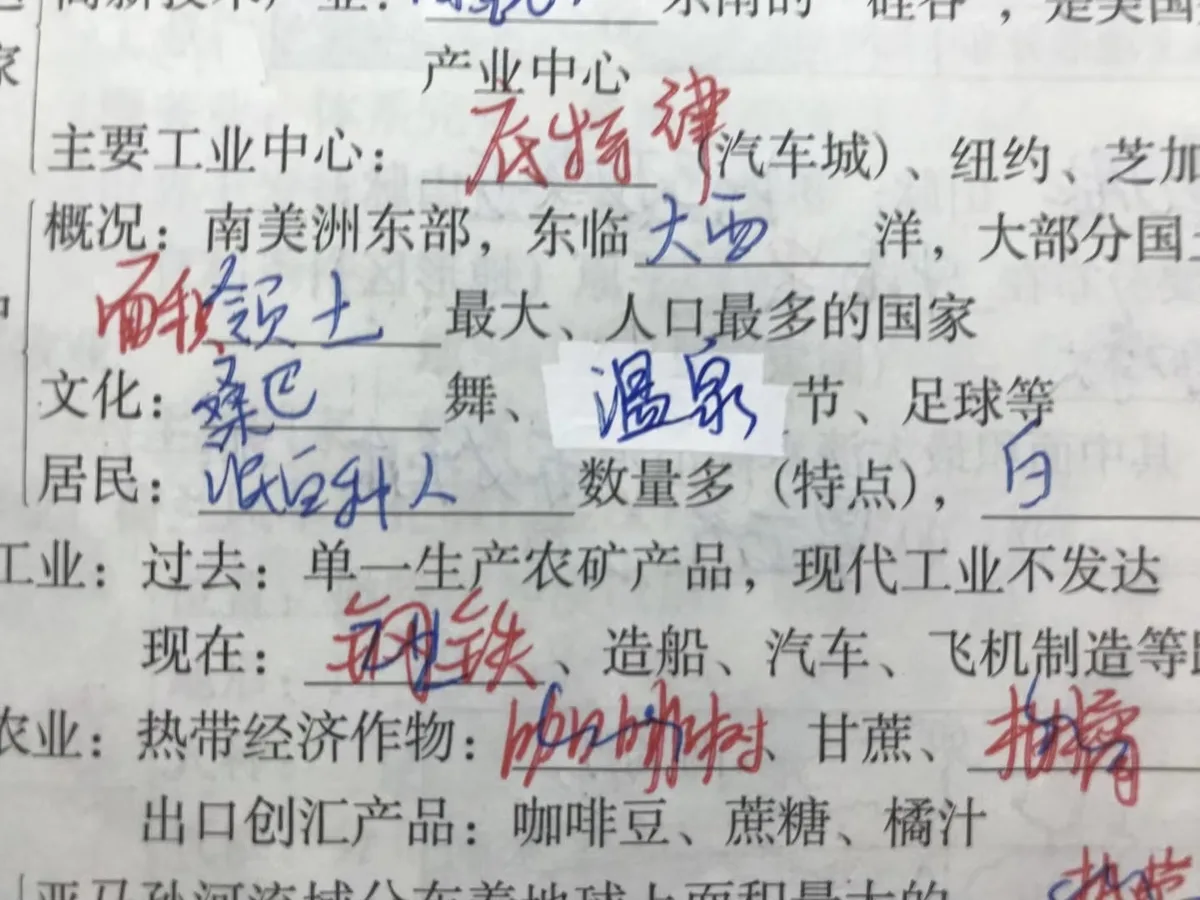 高新技术产业： 东南的"硅谷"，是美国
家 产业中心
主要工业中心：底特律（汽车城）、纽约、芝加
概况：南美洲东部，东临大西洋，大部分国土
面积领土最大、人口最多的国家
文化：桑巴舞、温泉节、足球等
居民：混血种人数量多（特点），白
工业：过去：单一生产农矿产品，现代工业不发达
现在：钢铁、造船、汽车、飞机制造等
农业：热带经济作物：咖啡树、甘蔗、柑橘
出口创汇产品：咖啡豆、蔗糖、橘汁
亚马孙河流域分布着地球上面积最大的热带